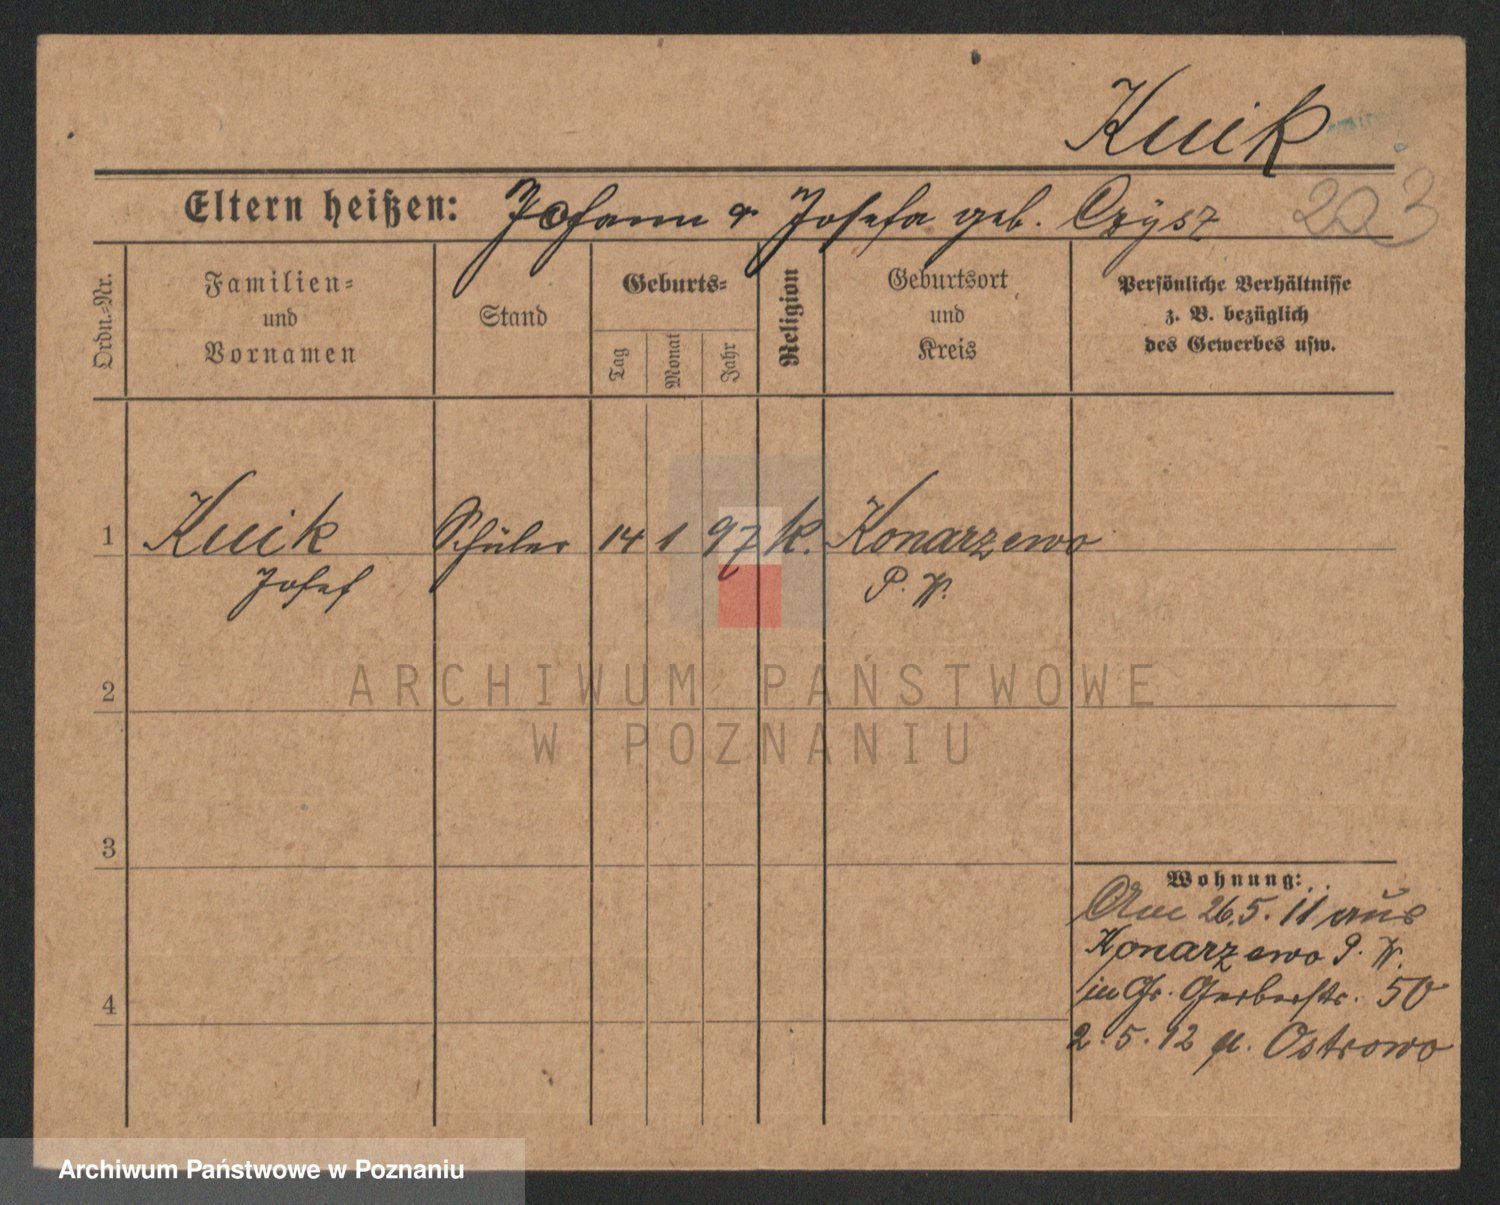 Kuik
Eltern heißen: Johann u. Josefa geb. Czysz 203
Ordn.-Nr.
Familien-
und
Vornamen
Stand
Geburts-
Tag
Monat
Jahr
Religion
Geburtsort
und
Kreis
Persönliche Verhältnisse
z. B. bezüglich
des Gewerbes usw.
1 Kuik Schüler 14 1 97 k. Konarzewo
Josef P. W.
2
ARCHIWUM PAŃSTWOWE
W POZNANIU
3
Wohnung:
Am 26.5.11 aus
Konarzewo P. W.
in Gr. Gerberstr. 50
4
2.5.12 n. Ostrowo
Archiwum Państwowe w Poznaniu